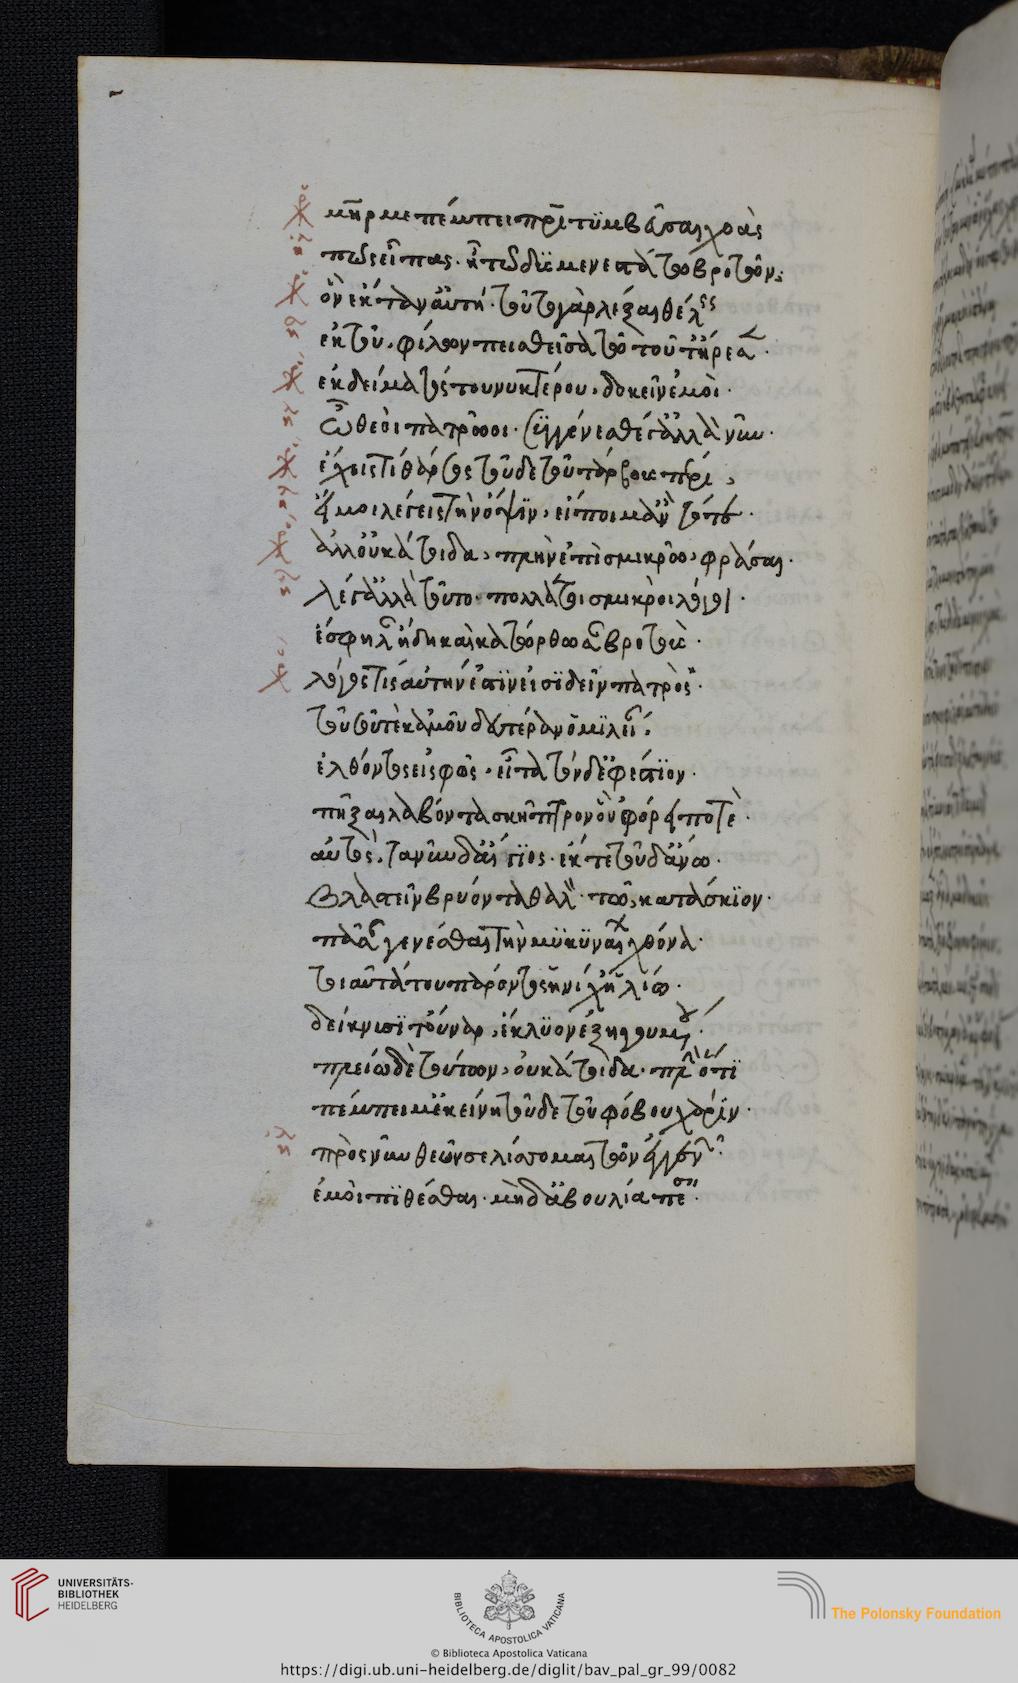 χρ. μήτηρ με πέμπει πατρὶ τυμβεῦσαι χοάς
ηλ. πῶς εἶπας· ἦ τῷ δυσμενεστάτῳ βροτῶν;
χρ. ὃν ἔκταν' αὐτή· τοῦτο γὰρ λέξαι θέλεις
ηλ. ἐκ τοῦ φίλων πεισθεῖσα τῷ τοῦτ' ἤρεσεν·
χρ. ἐκ δείματός του νυκτέρου, δοκεῖν ἐμοί·
ηλ. ὦ θεοὶ πατρῷοι· συγγένεσθέ γ' ἀλλὰ νῦν·
χρ. ἔχεις τι θάρσος τοῦδε τοῦ τάρβους πέρι,
ηλ. εἴ μοι λέγεις τὴν ὄψιν, εἴποιμ' ἂν τότε·
χρ. ἀλλ' οὐ κάτοιδα, πλὴν ἐπὶ σμικρὸν φράσαι·
ηλ. λέγ' ἀλλὰ τοῦτο· πολλά τοι σμικροὶ λόγοι·
ἔσφηλαν ἤδη καὶ κατώρθωσαν βροτούς·
χρ. λόγος τις αὐτήν ἐστιν εἰσιδεῖν πατρὸς
τοῦ σοῦ τε κἀμοῦ δευτέραν ὁμιλίαν
ἐλθόντος εἰς φῶς, εἶτα τόνδ' ἐφέστιον·
πῆξαι λαβόντα σκῆπτρον οὑφόρει ποτὲ·
αὐτός, τανῦν δ' Αἴγισθος· ἔκ τε τοῦδ' ἄνω·
βλαστεῖν βρύοντα θαλλὸν τῷ κατάσκιον·
πᾶσαν γενέσθαι τὴν μυκηναίων χθόνα·
τοιαῦτά του παρόντος ἡνίχ' ἡλίῳ·
δείκνυσι τοὔναρ, ἔκλυον ἐξηγουμένου·
πλείω δὲ τούτων, οὐ κάτοιδα· πλὴν ὅτι
πέμπει μ' ἐκείνη τοῦδε τοῦ φόβου χάριν·
ηλ. πρὸς νῦν θεῶν σε λίσσομαι τῶν ἐγγενῶν·
ἐμοὶ πιθέσθαι· μὴδ' ἀβουλίᾳ πεσεῖν·
UNIVERSITÄTS-
BIBLIOTHEK
HEIDELBERG
BIBLIOTECA APOSTOLICA VATICANA
The Polonsky Foundation
© Biblioteca Apostolica Vaticana
https://digi.ub.uni-heidelberg.de/diglit/bav_pal_gr_99/0082